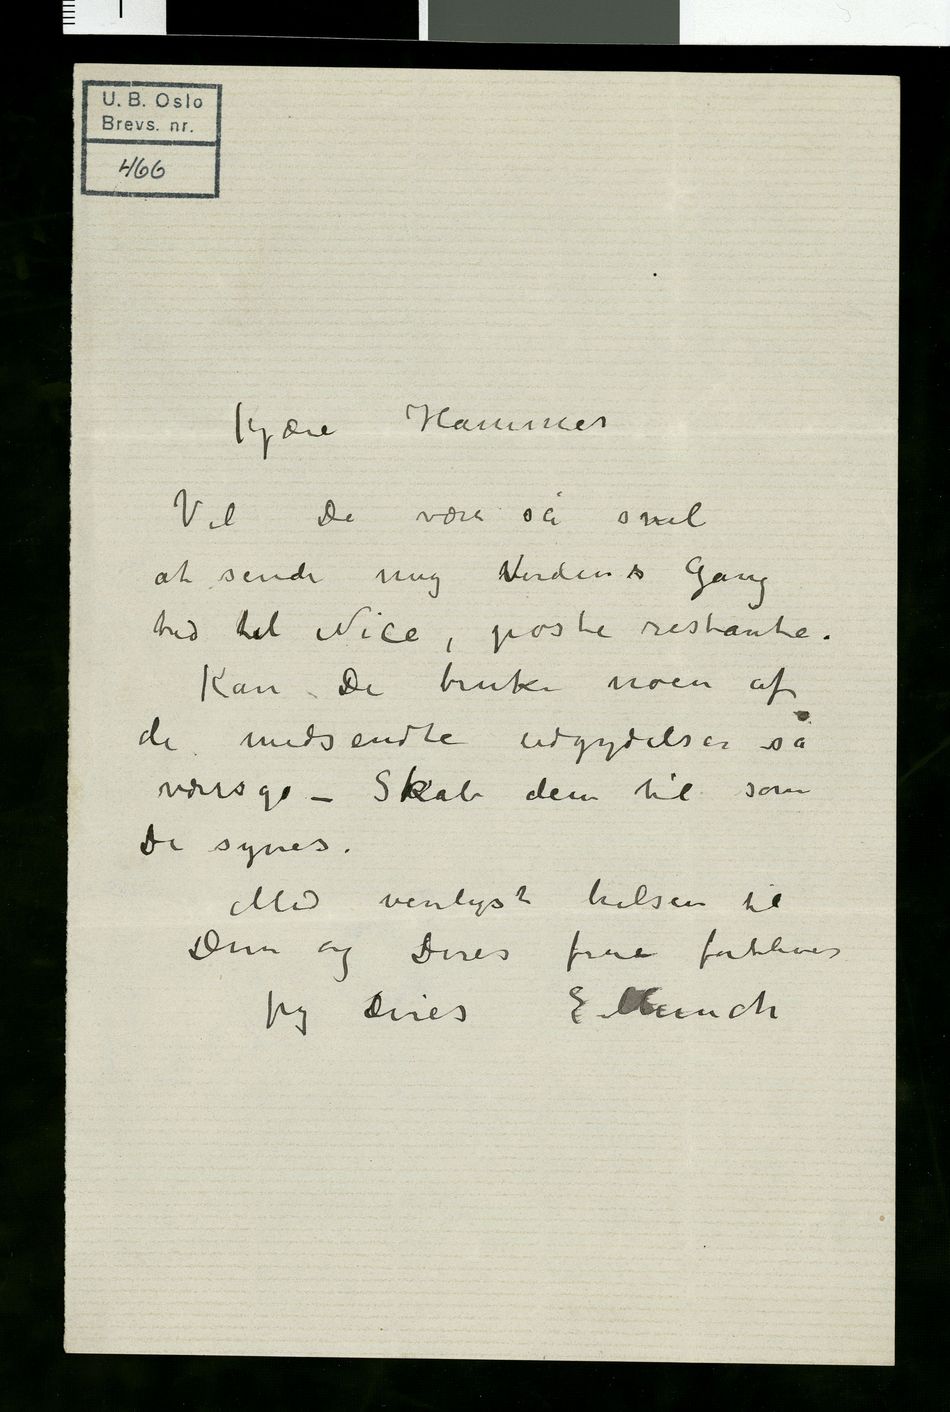 U. B. Oslo
Brevs. nr.
466
Kjære Hammer
Vil De være så snil
at sende mig Verdens Gang
hid til Nice, poste restante.
Kan De bruke noen af
de medsendte udgydelser så
værsgo – Skab dem til som
De synes.
Med venligst hilsen til
Dem og Deres frue forbliver
jeg Deres E. Munch